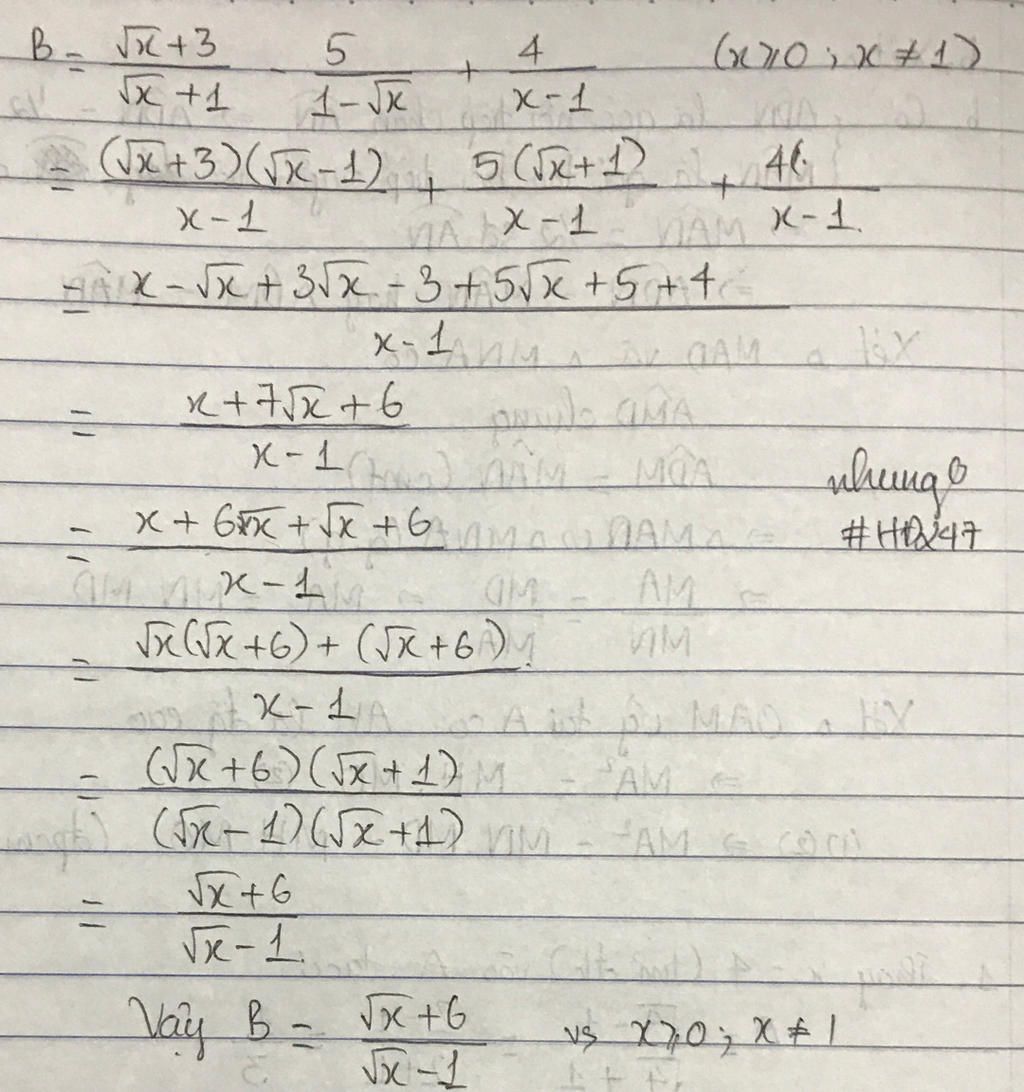 B = (√x + 3)/(√x + 1) - 5/(1 - √x) + 4/(x - 1) (x ⩾ 0 ; x ≠ 1)
= (√x + 3)(√x - 1)/(x - 1) + 5(√x + 1)/(x - 1) + 4(/(x - 1).
= (x - √x + 3√x - 3 + 5√x + 5 + 4)/(x - 1)
= (x + 7√x + 6)/(x - 1)
nhung
= (x + 6√x + √x + 6)/(x - 1)
= (√x(√x + 6) + (√x + 6))/(x - 1)
= (√x + 6)(√x + 1)/(√x - 1)(√x + 1)
= (√x + 6)/(√x - 1).
Vậy B = (√x + 6)/(√x - 1) vs x ⩾ 0 ; x ≠ 1